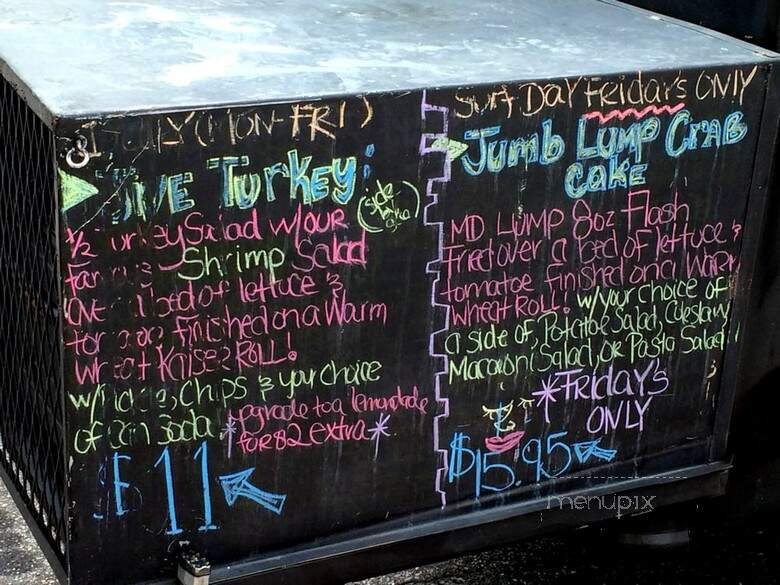 (MON-FRI)
JIVE TURKEY:
(side by side)
1/2 Turkey Salad w/OUR
Shrimp Salad
bed of lettuce &
finished on a Warm
wheat Kaiser ROLL!
w/pickle, Chips & your choice
of Can Soda
*upgrade to a lemonade
for $2 extra*
$11
SunDay Fridays ONLY
Jumb Lump CraB
Cake
MD LUMP 8oz Flash
Fried over a bed of lettuce &
tomatoe finished on a Warm
wheat ROLL! w/your choice of
a side of, Potatoe Salad, Coleslaw,
Macaroni Salad, or Pasta Salad!
*FRIDAY'S
ONLY
$15.95
menupix